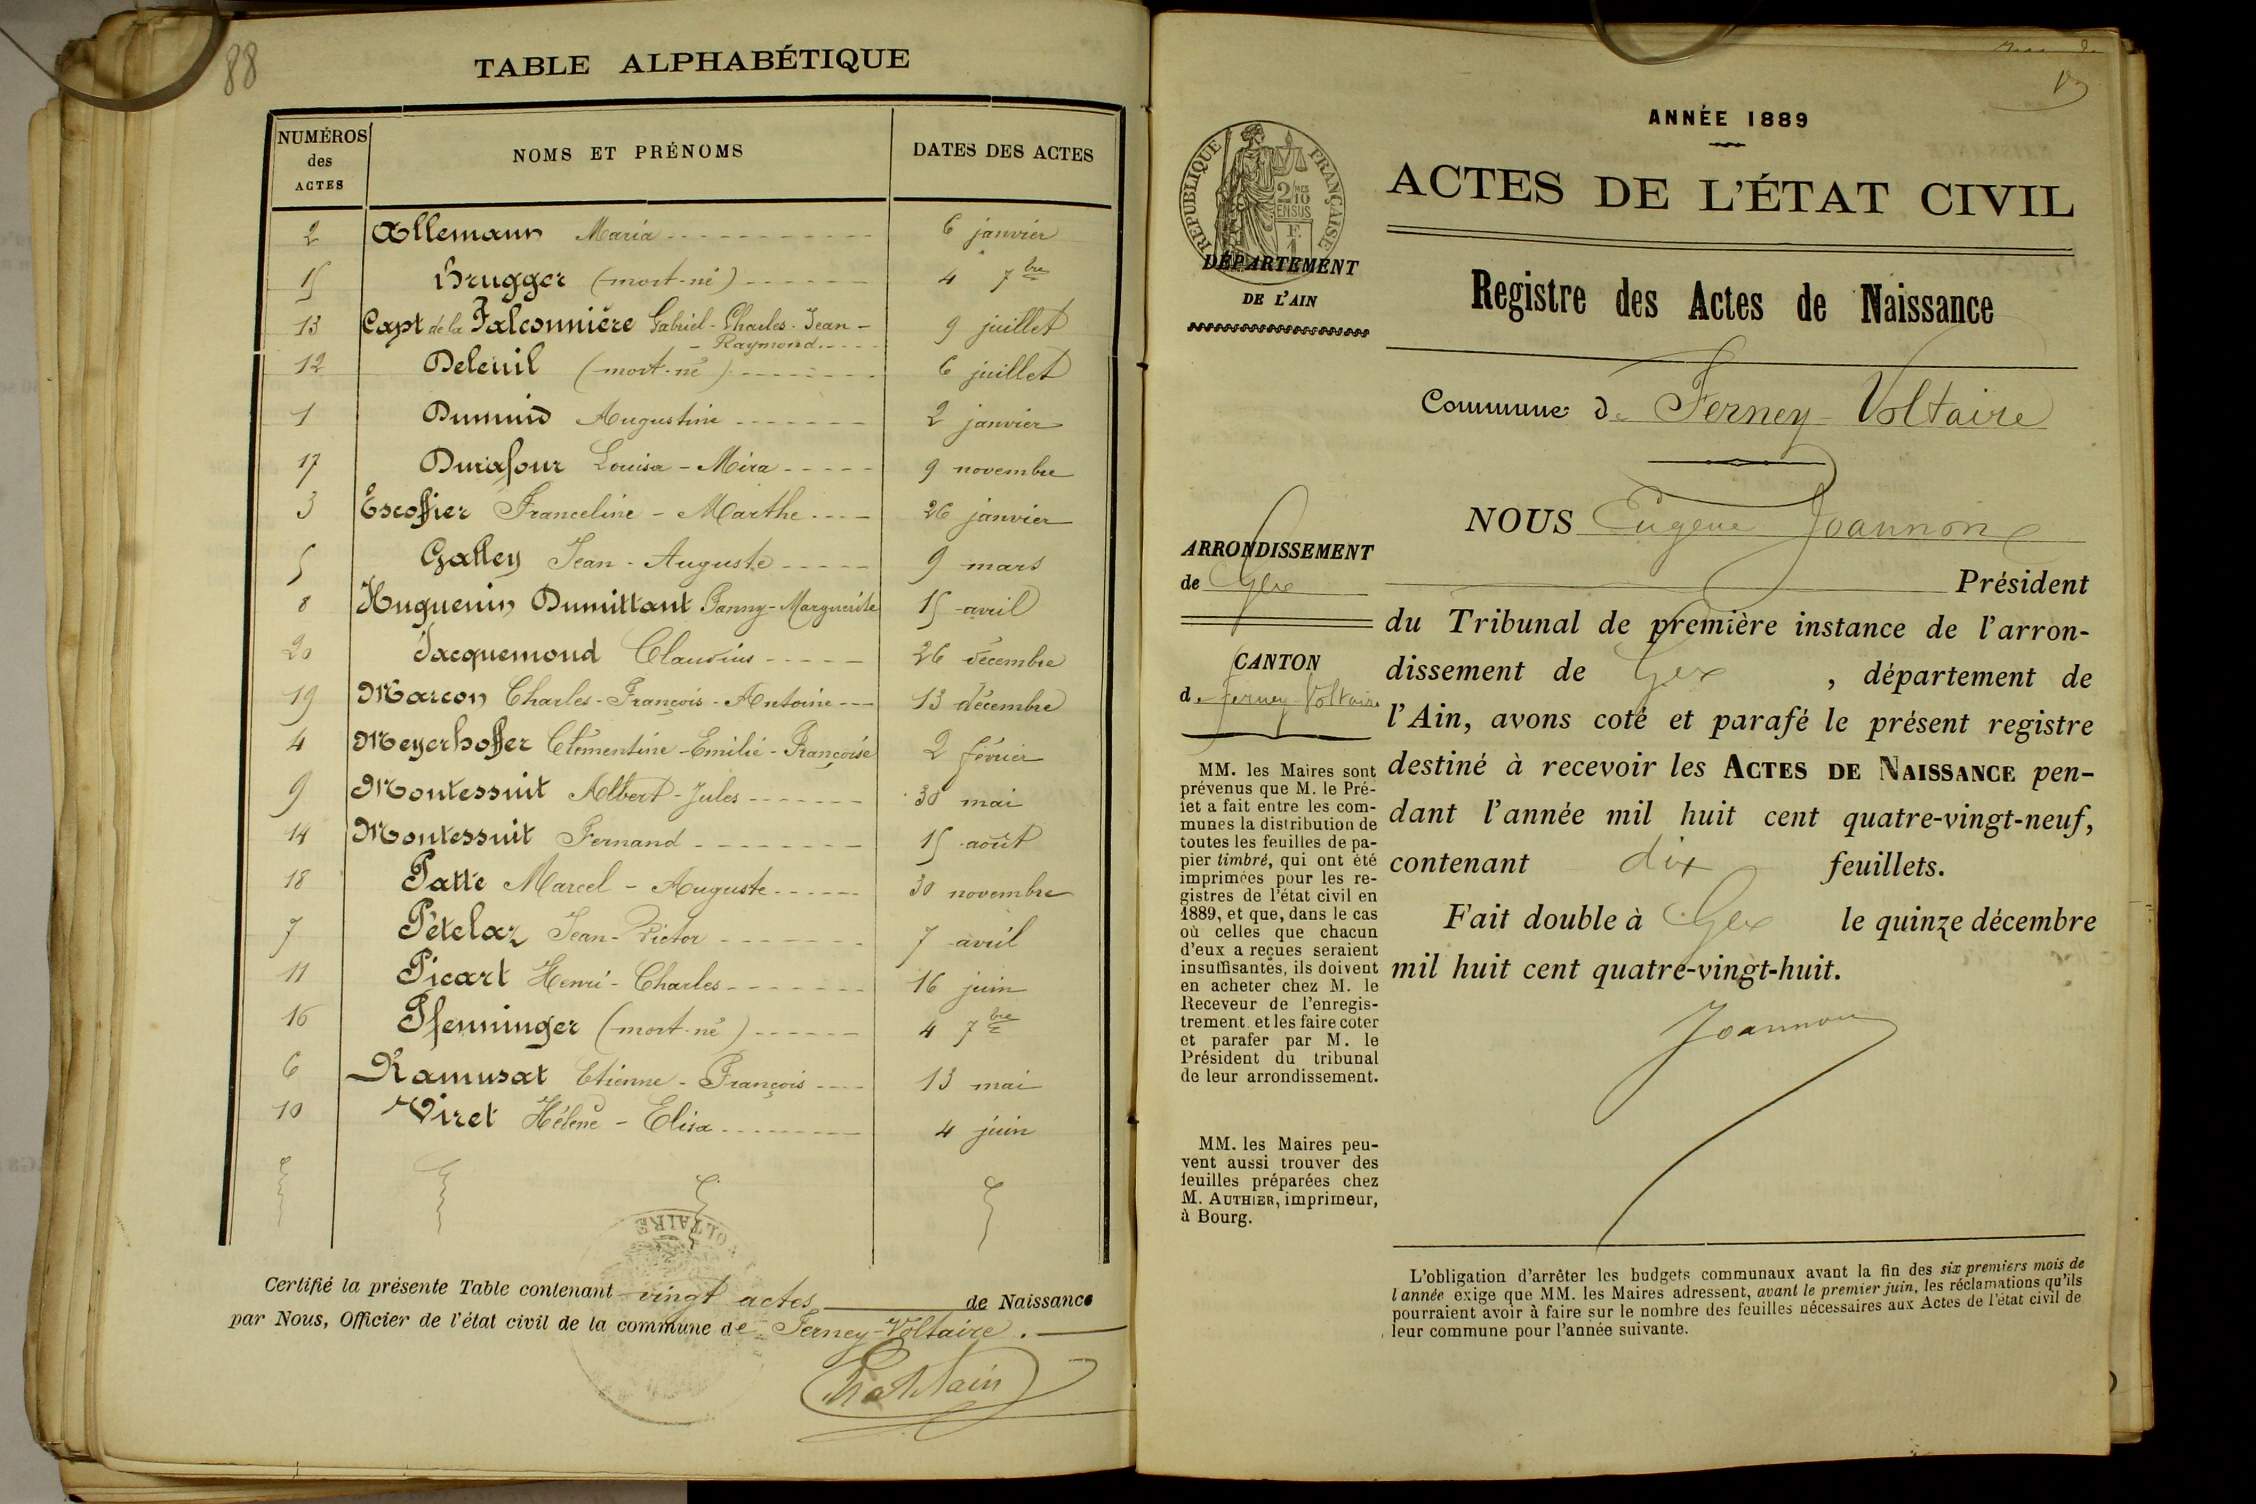 88
TABLE ALPHABÉTIQUE
NUMÉROS des ACTES | NOMS ET PRÉNOMS | DATES DES ACTES
2 Allemann Maria 6 janvier
15 Brugger (mort-né) 4 7bre
13 Capt de la Falconnière Gabriel-Charles-Jean- 9 juillet
- Raymond
12 Deleuil (mort-né) 6 juillet
1 Dumuid Augustine 2 janvier
17 Durafour Louisa-Mira 9 novembre
3 Escoffier Franceline-Marthe 26 janvier
5 Galley Jean-Auguste 9 mars
8 Huguenin Dumittant Fanny-Marguerite 15 avril
20 Jacquemoud Claudius 26 décembre
19 Marcon Charles-François-Antoine 13 décembre
4 Meyerhoffer Clémentine-Emilie-Françoise 2 février
9 Montessuit Albert-Jules 30 mai
14 Montessuit Fernand 15 août
18 Patte Marcel-Auguste 30 novembre
7 Pételaz Jean-Victor 7 avril
11 Picart Henri-Charles 16 juin
16 Pfenninger (mort-né) 4 7bre
6 Ramusat Etienne-François 13 mai
10 Viret Hélène-Elisa 4 juin
Certifié la présente Table contenant vingt actes de Naissance
par Nous, Officier de l'état civil de la commune de Ferney-Voltaire.
OLTAIRE
ANNÉE 1889
ACTES DE L'ÉTAT CIVIL
RÉPUBLIQUE FRANÇAISE
2/10 EN SUS
F. 1
DÉPARTEMENT
DE L'AIN
Registre des Actes de Naissance
Commune de Ferney-Voltaire
ARRONDISSEMENT
de Gex
CANTON
de Ferney-Voltaire
MM. les Maires sont
prévenus que M. le Pré-
fet a fait entre les com-
munes la distribution de
toutes les feuilles de pa-
pier timbré, qui ont été
imprimées pour les re-
gistres de l'état civil en
1889, et que, dans le cas
où celles que chacun
d'eux a reçues seraient
insuffisantes, ils doivent
en acheter chez M. le
Receveur de l'enregis-
trement et les faire coter
et parafer par M. le
Président du tribunal
de leur arrondissement.
MM. les Maires peu-
vent aussi trouver des
feuilles préparées chez
M. AUTHIER, imprimeur,
à Bourg.
NOUS Eugène Joannon
Président
du Tribunal de première instance de l'arron-
dissement de Gex, département de
l'Ain, avons coté et parafé le présent registre
destiné à recevoir les ACTES DE NAISSANCE pen-
dant l'année mil huit cent quatre-vingt-neuf,
contenant dix feuillets.
Fait double à Gex le quinze décembre
mil huit cent quatre-vingt-huit.
Joannon
L'obligation d'arrêter les budgets communaux avant la fin des six premiers mois de
l'année exige que MM. les Maires adressent, avant le premier juin, les réclamations qu'ils
pourraient avoir à faire sur le nombre des feuilles nécessaires aux Actes de l'état civil de
leur commune pour l'année suivante.